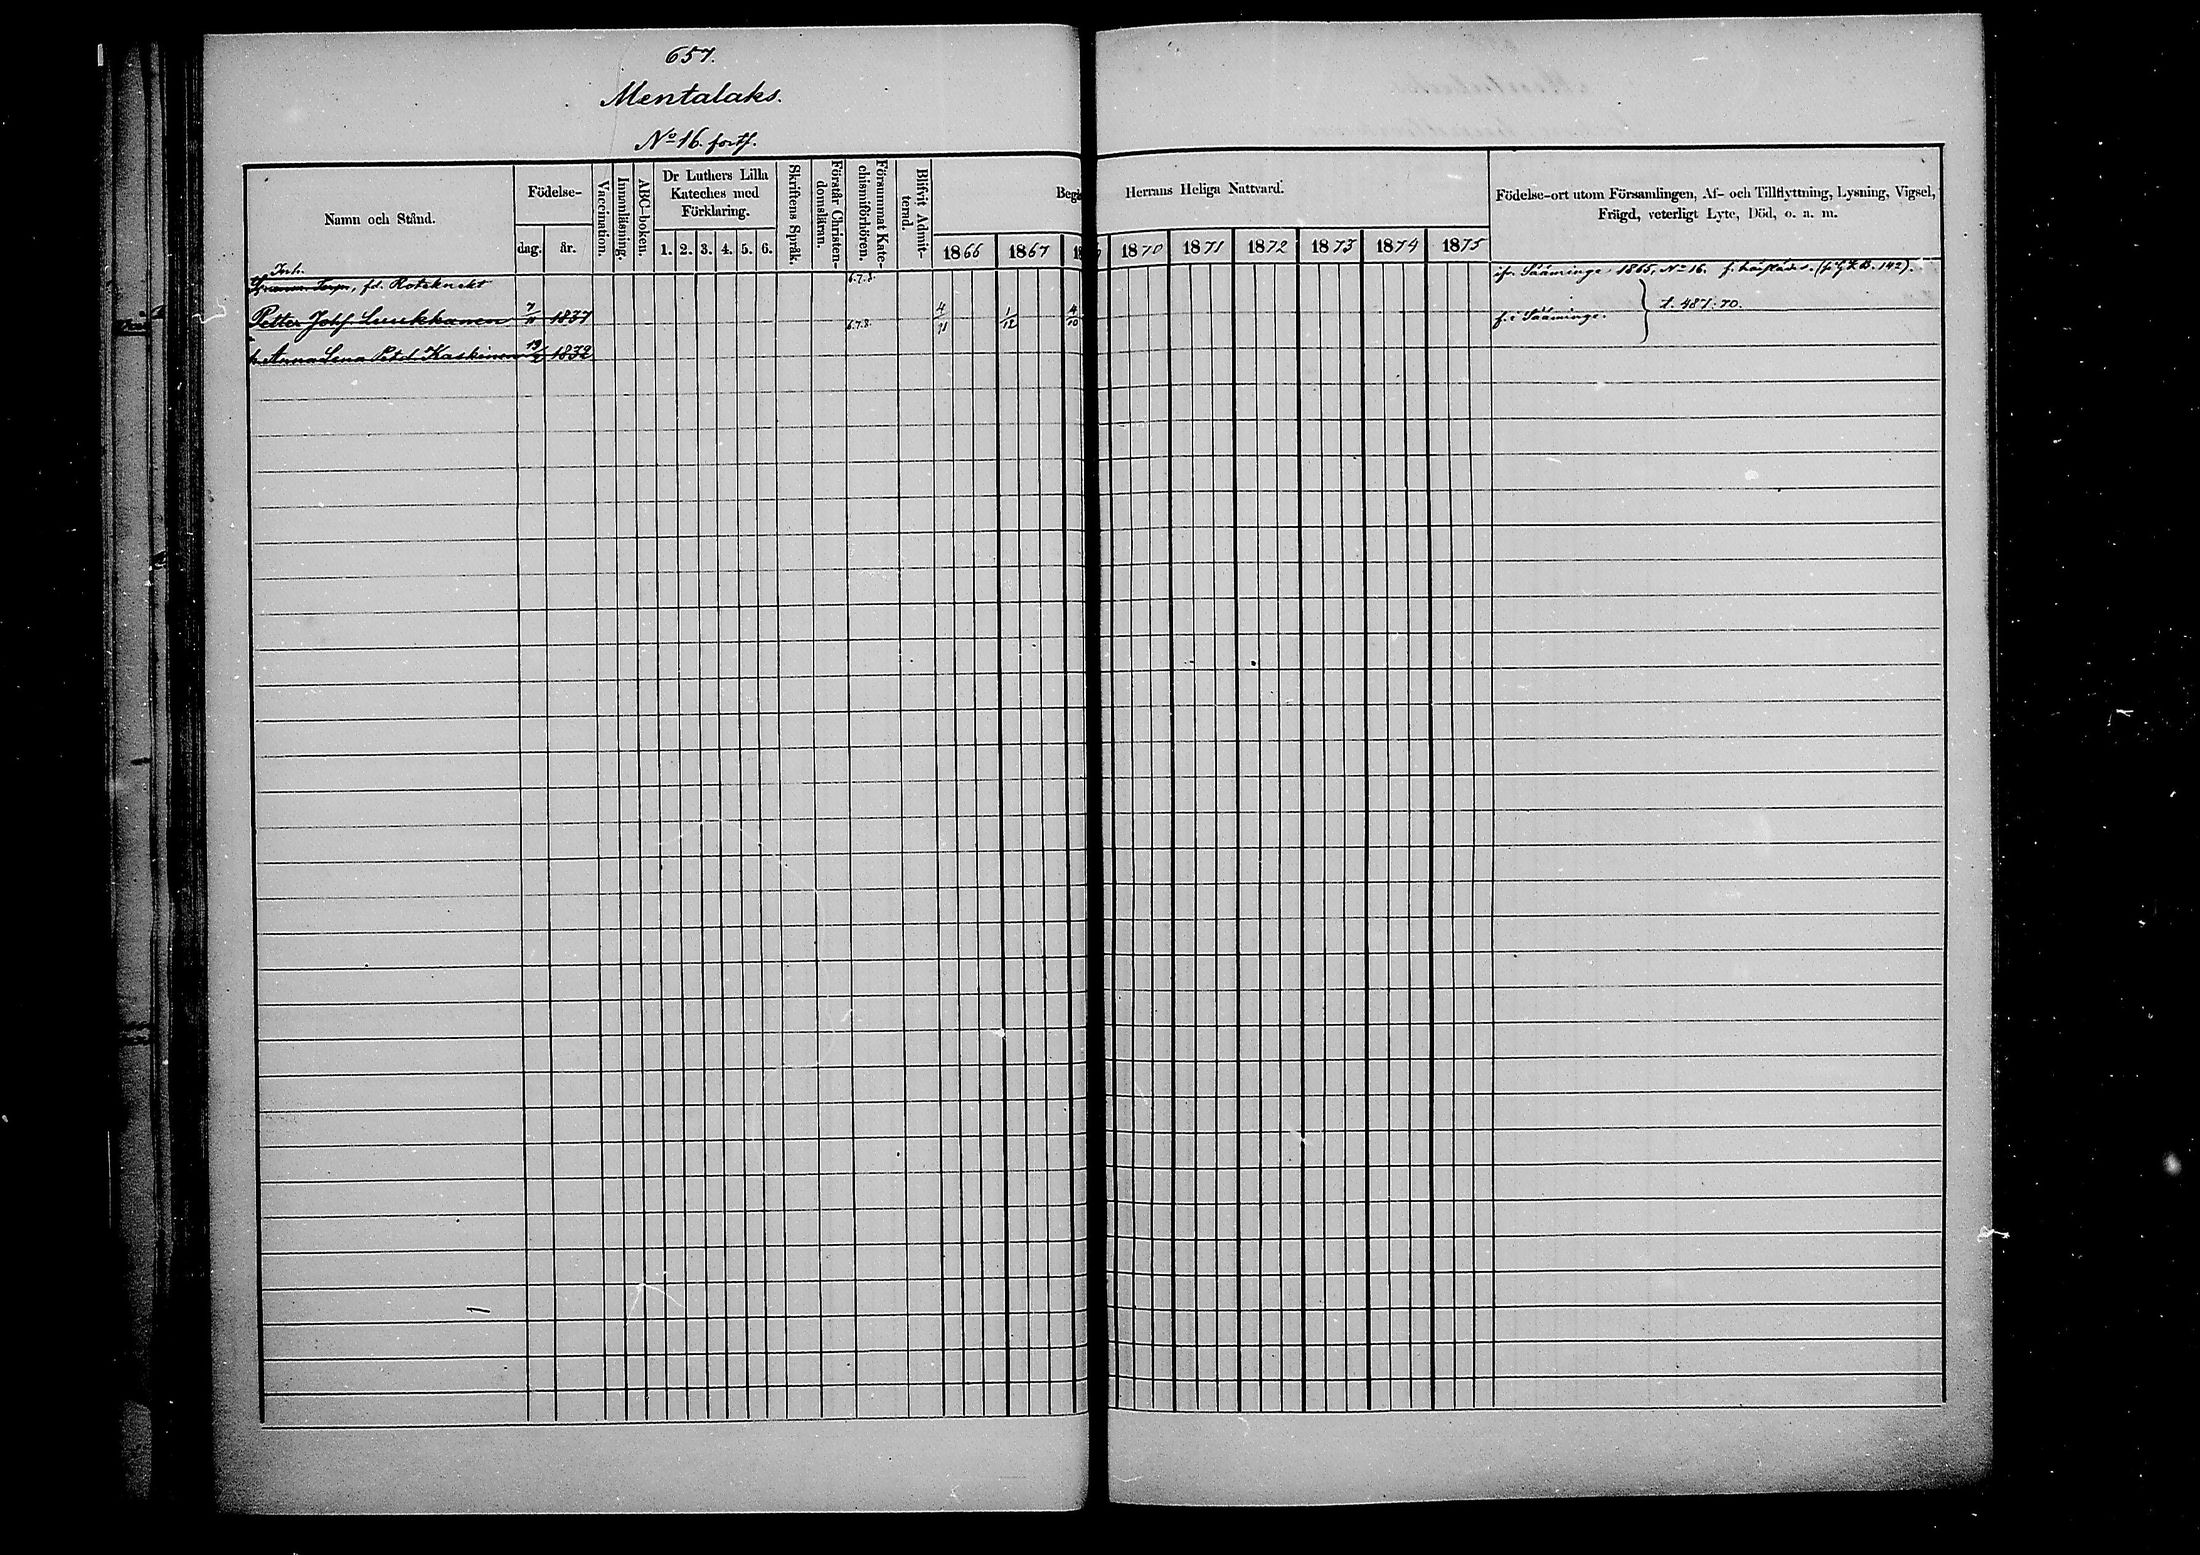 657.
Mentalaks.
No 16. fortf.
Namn och Stånd.
Födelse-
dag.
år.
Vaccination.
Innanläsning.
ABC-boken.
Dr Luthers Lilla
Kateches med
Förklaring.
1. 2. 3. 4. 5. 6.
Skriftens Språk.
Förstår Christen-
domsläran.
Försummat Kate-
chismiförhören.
Blifvit Admit-
terad.
Herrans Heliga Nattvard.
1866 1867 1870 1871 1872 1873 1874 1875
Födelse-ort utom Församlingen, Af- och Tillflyttning, Lysning, Vigsel,
Frägd, veterligt Lyte, Död, o. a. m.
Inh.
fd. Roteknekt 6.7.8. Sääminge 1865, No 16. 142).
Petter Johsf Luukkanen 7/11 1837 6.7.8. 4/11 1/12 4/10 f. i Sääminge. t. 481. 70.
h. Anna Lena Petsd. Kaskinen 19/2 1832